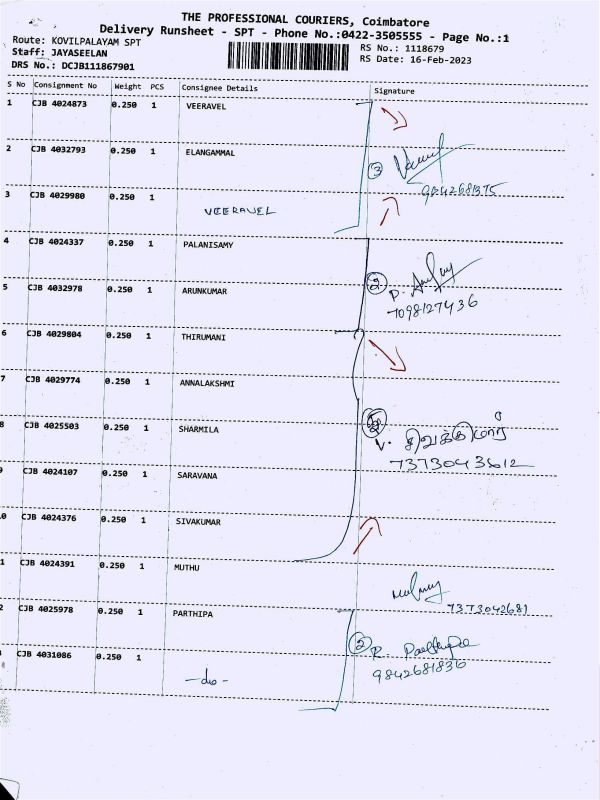 THE PROFESSIONAL COURIERS, Coimbatore
Delivery Runsheet - SPT - Phone No.:0422-3505555 - Page No.:1
Route: KOVILPALAYAM SPT
RS No.: 1118679
Staff: JAYASEELAN
RS Date: 16-Feb-2023
DRS No.: DCJB111867901
S No Consignment No Weight PCS Consignee Details Signature
1 CJB 4024873 0.250 1 VEERAVEL
2 CJB 4032793 0.250 1 ELANGAMMAL
③
9842681375
3 CJB 4029980 0.250 1 VEERAVEL
4 CJB 4024337 0.250 1 PALANISAMY
5 CJB 4032978 0.250 1 ARUNKUMAR
②
7098127436
6 CJB 4029804 0.250 1 THIRUMANI
7 CJB 4029774 0.250 1 ANNALAKSHMI
8 CJB 4025503 0.250 1 SHARMILA
V. சிவக்குமார்
7373043612
9 CJB 4024107 0.250 1 SARAVANA
0 CJB 4024376 0.250 1 SIVAKUMAR
1 CJB 4024391 0.250 1 MUTHU
7373042681
2 CJB 4025978 0.250 1 PARTHIPA
② R.
9842681836
CJB 4031086 0.250 1 -do-